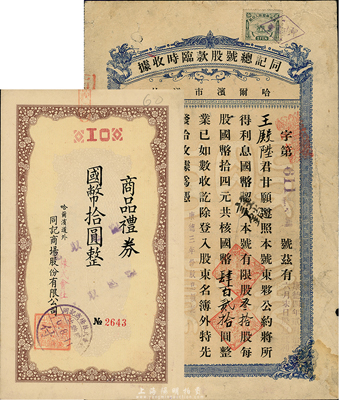 同記總號股款臨時收據
哈爾濱市
字第 號茲有
王殿陞君甘願遵照本號東夥公約將所
得利息國幣 本號有限股叁拾股每
股國幣拾四元共核國幣肆百貳拾圓整
業已如數收訖除登入股東名簿外特先
發給收據為憑
10
商品禮券
國幣拾圓整
哈爾濱道外
同記商場股份有限公司
№ 2643